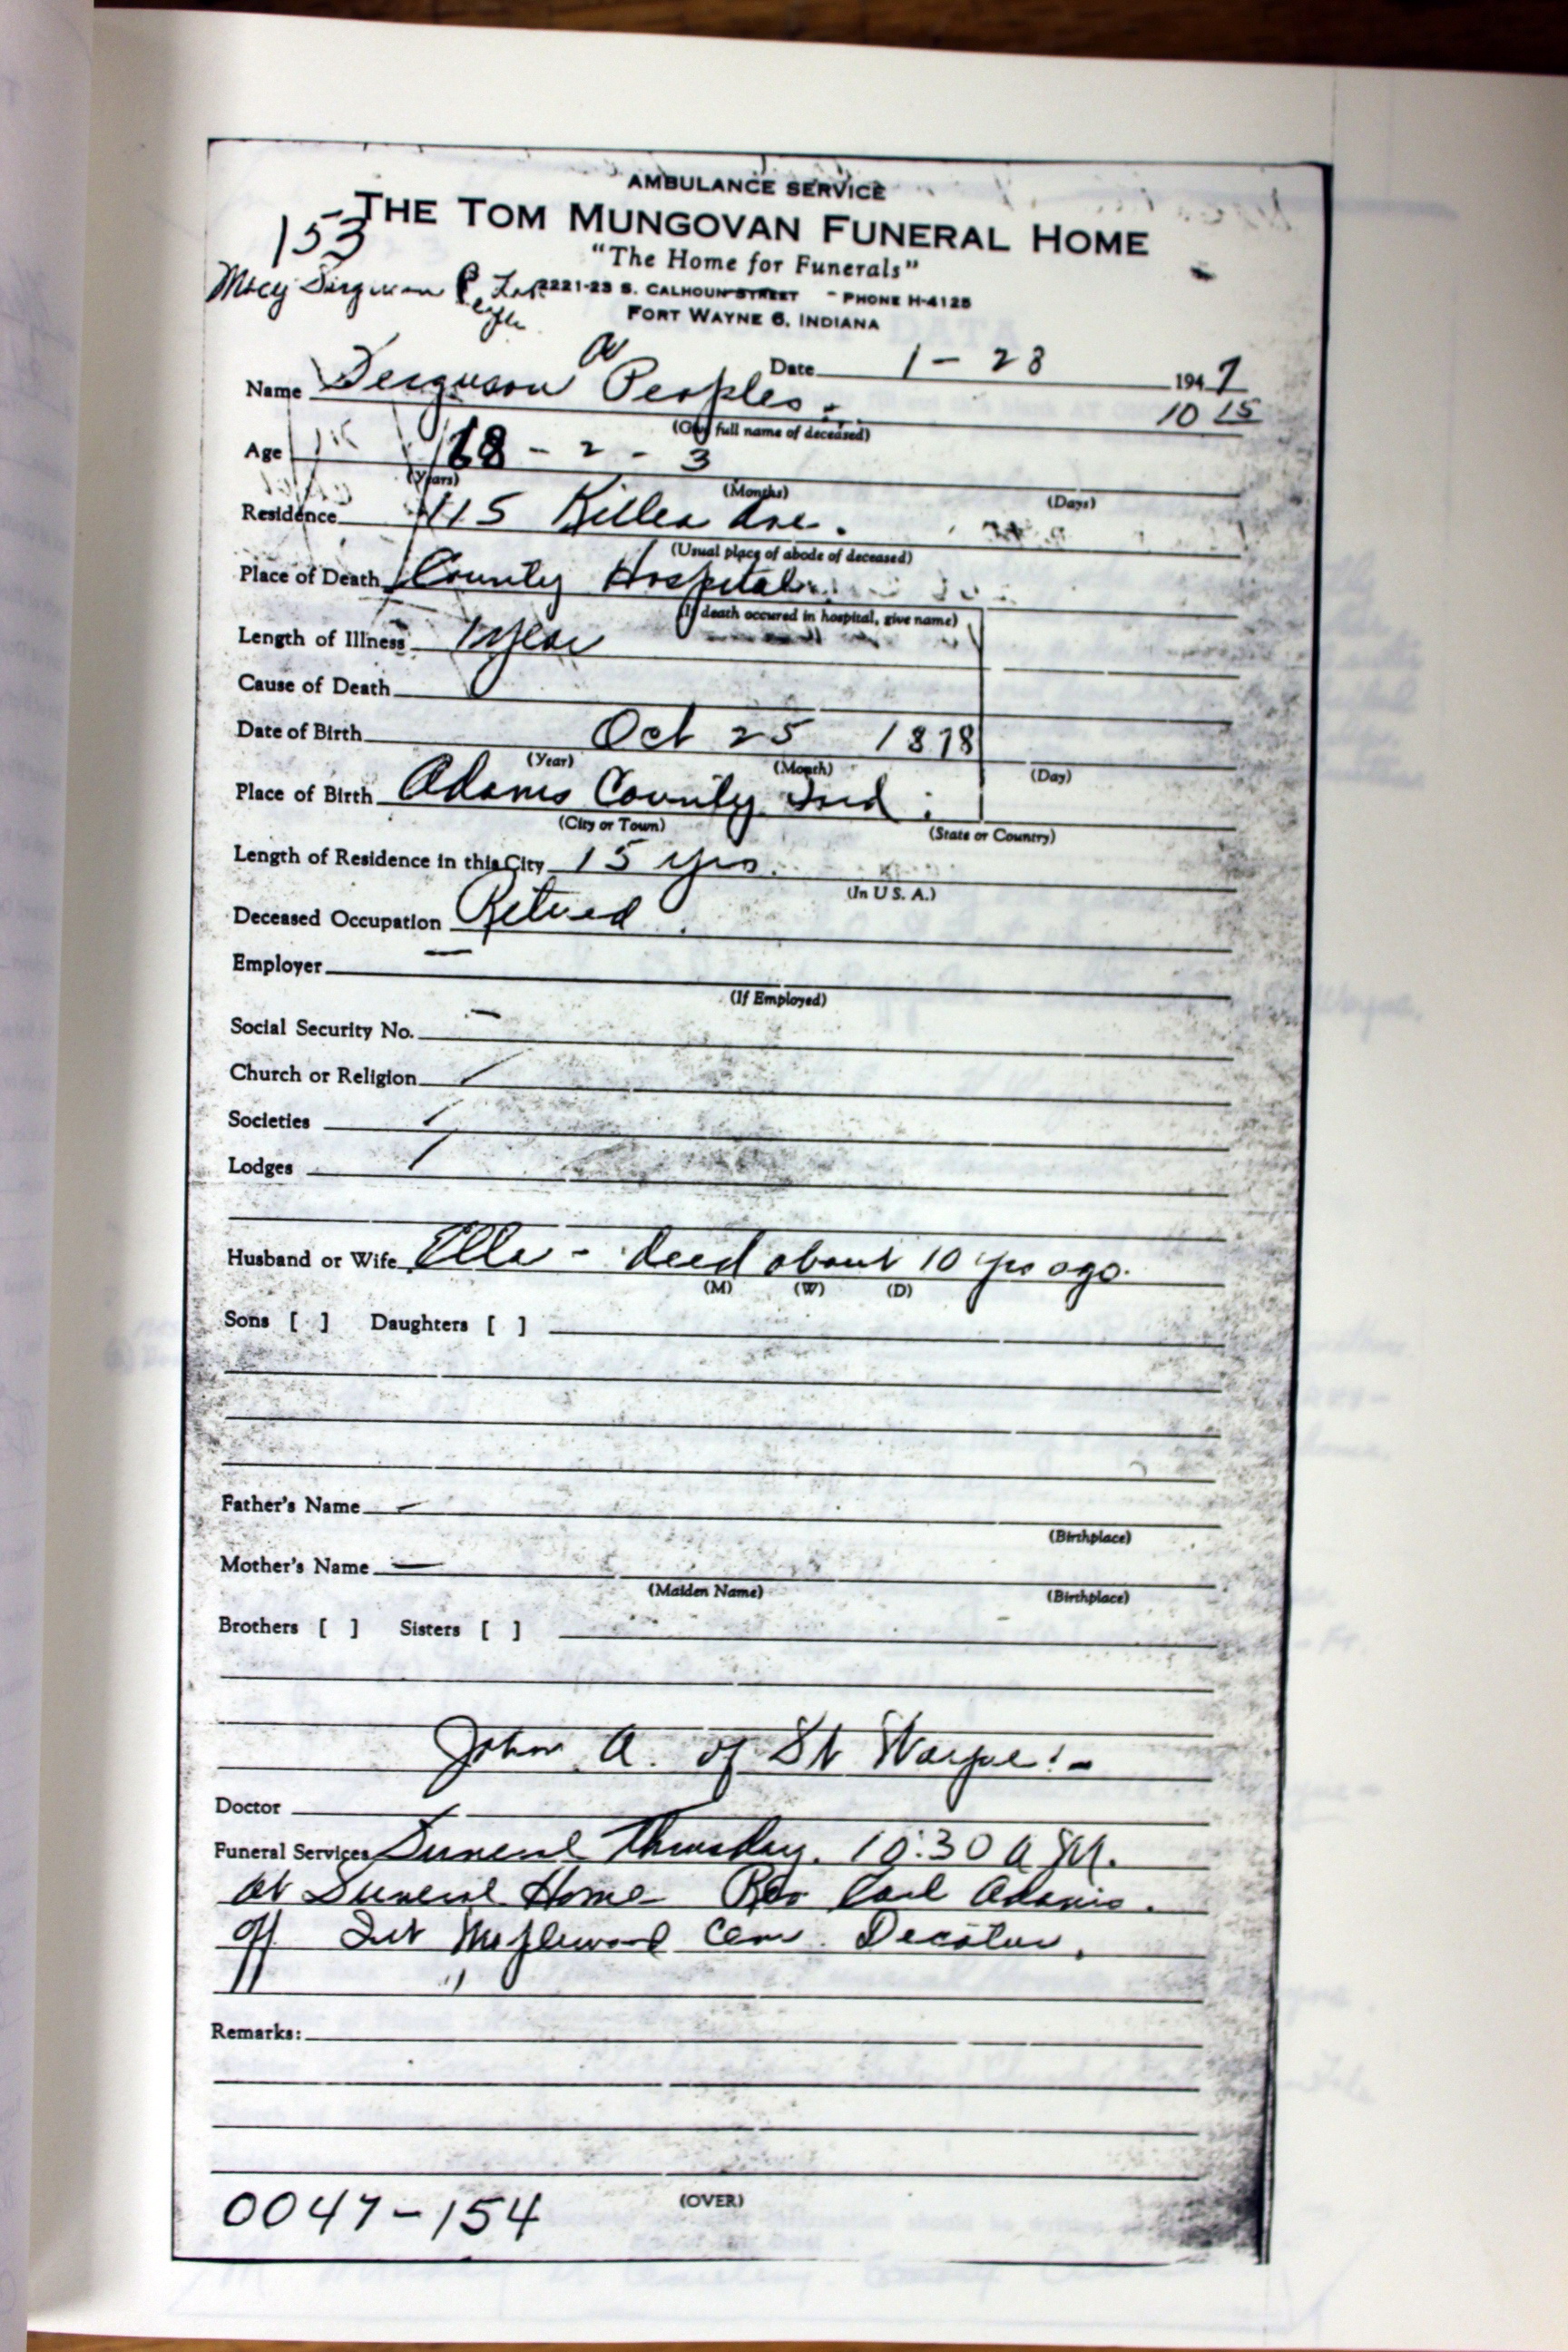 AMBULANCE SERVICE
THE TOM MUNGOVAN FUNERAL HOME
153
"The Home for Funerals"
2221-23 S. CALHOUN STREET - PHONE H-4125
FORT WAYNE 6, INDIANA
Date 1-28 1947
Name Ferguson A Peoples.
10 15
(Give full name of deceased)
Age 68-2-3
(Years) (Months) (Days)
Residence 115 Ave.
(Usual place of abode of deceased)
Place of Death County Hospital
(If death occured in hospital, give name)
Length of Illness 1 year
Cause of Death
Date of Birth Oct 25 1878
(Year) (Month) (Day)
Place of Birth Adams County Ind.
(City or Town) (State or Country)
Length of Residence in this City 15 yrs.
(In U.S.A.)
Deceased Occupation Retired.
Employer —
(If Employed)
Social Security No. —
Church or Religion /
Societies /
Lodges /
Husband or Wife Ella - deed about 10 yrs ago.
(M) (W) (D)
Sons [ ] Daughters [ ]
Father's Name —
(Birthplace)
Mother's Name —
(Maiden Name) (Birthplace)
Brothers [ ] Sisters [ ]
John A. of Ft Wayne:-
Doctor
Funeral Services Funeral Thursday. 10:30 A M.
at Funeral Home Rev Adams.
off Int Maplewood Cem. Decatur.
Remarks:
(OVER)
0047-154